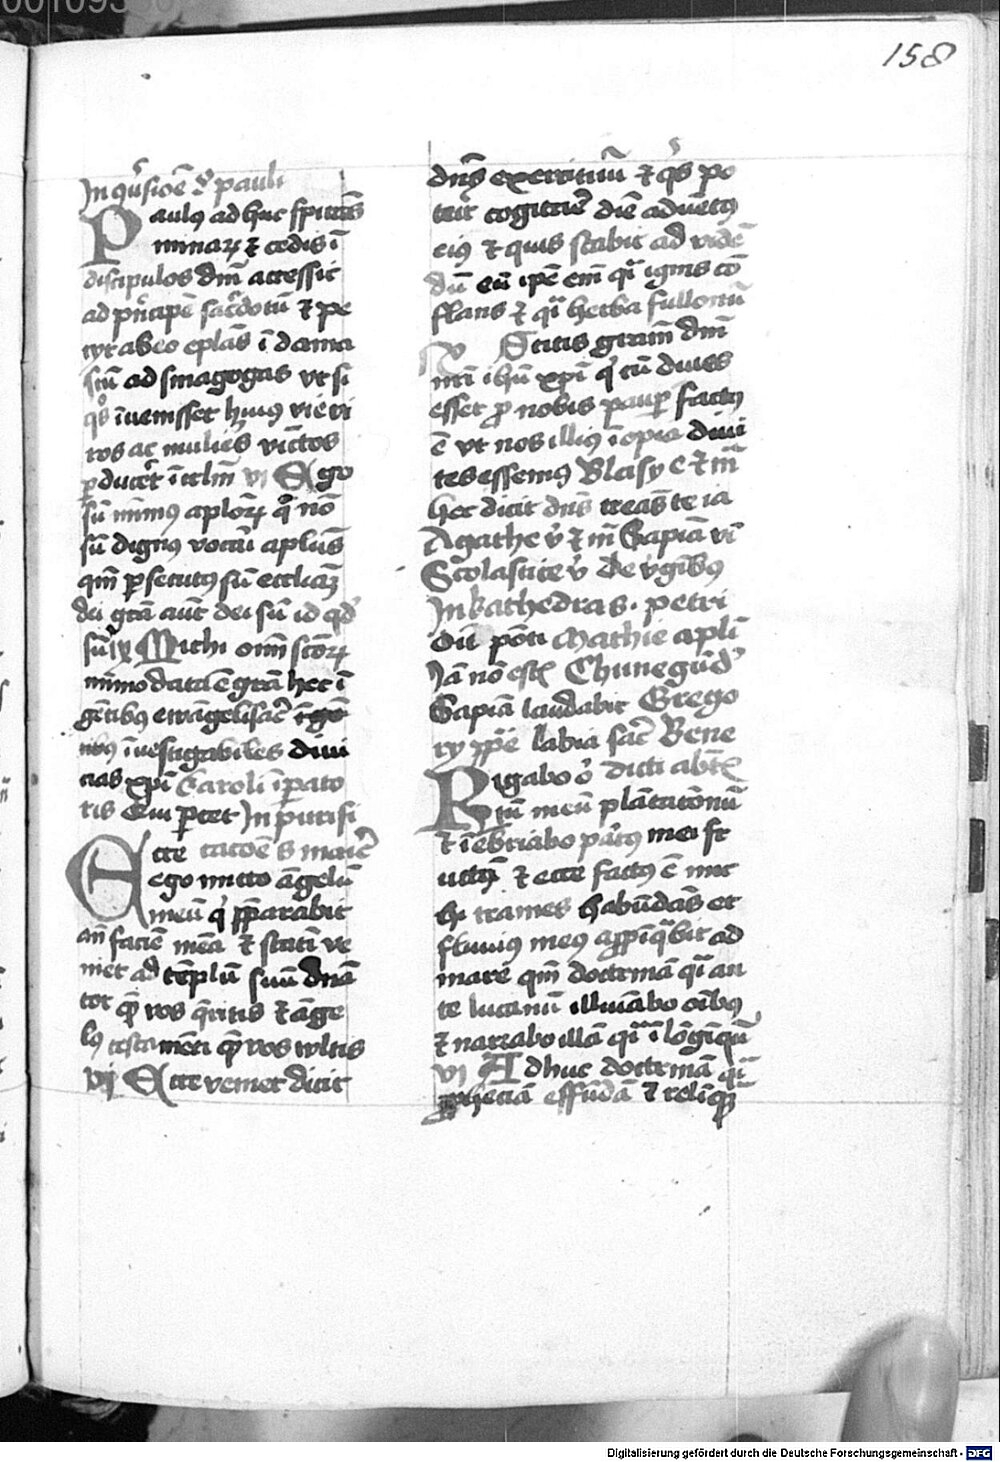 158
In ꝯu᷑sioē s᷑ pauli
Paulꝰ ad huc spirās
minaꝝ ⁊ cedis ī
discipulos dn̄i accessit
ad pͥncipē sac᷑dotū ⁊ pe
cyt ab eo epl̄as ī dama
scū ad sinagogas vt si
qͦs īuenisset huiꝰ vie vi
ros ac mulie᷑s vīctos
ꝑduce᷑t ī ierl̄m vi Ego
sū mīmꝰ apl̄oꝝ qͥ nō
sū dignꝰ vocari apl̄us
qm̄ ꝑsecutꝰ sū eccl̄iaȝ
dei gr̄a aut̄ dei sū id qd᷑
sū iꝯ Michi om̄i sc̄oꝝ
mīmo data ē gr̄a hec ī
gētibꝰ ewāgelisar̄e ī gē
tibꝰ īuestigabiles diui
cias xp̄i Caroli īꝑato
ris Cui ꝑtet In purifi
Ecce racōe s᷑ marie
ego mitto āgelū
meū qͥ p̄parabit
an̄ faciē meā ⁊ statī ve
niet ad tēplū suū dn̄a
tor quē vos q̄ritis ⁊ āge
lꝰ testamēti quē vos wltis
vij Ecce veniet dicit
dn̄s exercituū ⁊ qͥs po
terit cogitare diē aduētꝰ
eiꝰ ⁊ quis stabit ad vidē
dū eū ip̄e em̄ qͣi ignis cō
flans ⁊ qͣi herba fullonū
Scitis gr̄am dn̄i
nr̄i ih̄u xp̄i qͥ cū diues
esset ꝓ nobis pauꝑ factꝰ
ē vt nos illiꝰ īopia diui
tes essemꝰ Blasy E ⁊ m̄
hec dicit dn̄s creās te ia
Agathe v̄ ⁊ m̄ Sapiā vi
Scolastice v̄ De v᷑gibꝰ
In kathedra s. petri
Dil pōti Mathie apl̄i
Iā nō estis Chunegūd᷑
Sapiā laudabit Grego
ry p̄pe labia sac᷑ Bene
dicti abt̄is
Rigabo o᷑
tū meū plātatōnū
⁊ īebriabo pa᷑tꝰ mei fr
uctū ⁊ ecce factꝰ ē mi
hi trames habūdās et
fluuiꝰ meꝰ aꝓpīqͣbit ad
mare qm̄ doctrinā qͣi an
te lucanū illuīabo oībꝰ
⁊ narrabo illā qͣi ī lōgīqū
vi Adhuc doctrinā qͣi
ꝓpheciā effūdā ⁊ relīqͣ
Digitalisierung gefördert durch die Deutsche Forschungsgemeinschaft - DFG